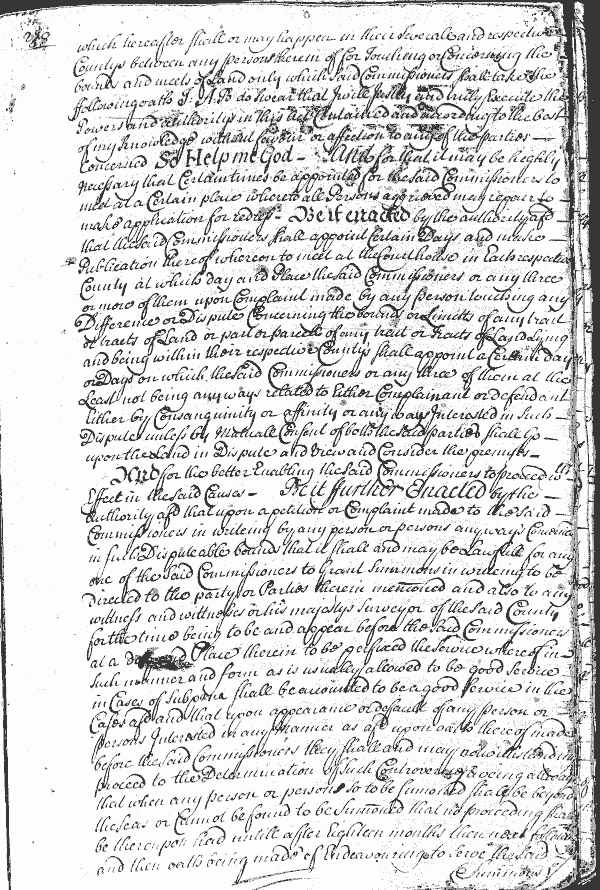 which hereafter shall or may happen in their Severall and respective
Countys between any persons therein of for Touching or Concerning the
bounds and meets of Land only which said Commissioners shall take the
following oath I A.B do swear that I will Justly and truly Execute the
Powers and Authoritys in this act Contained and according to the best
of my Knowledge without favour or affection to any of the parties
Concerned So Help me God - And for that it may be highly
necessary that Certain times be appointed for the said Commissioners to
meet at a Certain place where to all Persons aggrieved may repair to
make application for redress - Be it enacted by the authority afsd
that the said Commissioners shall appoint Certain Days and make
Publication thereof whereon to meet at the Court house in Each respective
County at which day and Place the said Commissioners or any three
or more of them upon Complaint made by any person touching any
Difference or Dispute Concerning the bounds or Limitts of any tract
or tracts of Land or part or parcell of any tract or tracts of Land Lying
and being within their respective Countys shall appoint a Certain day
or Days on which the said Commissioners or any three of them at the
Least not being any ways related to Either Complainant or Defendant
Either by Consanguinity or affinity or any ways Interested in Such
Dispute unless by Mutuall Consent of both the said parties shall Go
upon the Land in Dispute and View and Consider the premises
And for the better Enabling the said Commissioners to proceed
Effect in the said Causes - Be it further Enacted by the
Authority afsd that upon a petition or Complaint made to the said
Commissioners in writeing by any person or persons any ways Concerned
in such Disputeable bounds that it shall and may be Lawfull for any
one of the said Commissioners to Grant Summons in writeing to be
directed to the party or Parties therein mentioned and also to any
wittness and wittnesses or his majestys Surveyor of the said County
for the time being to be and appear before the said Commissioners
at a Place therein to be prefixed the service whereof in
such manner and form as is usually allowed to be good service
in Cases of Subpœna shall be accounted to be a good Service in the
Cases afsd and that upon appearance or default of any Person or
Persons Interested in any Manner as afsd upon oath thereof made
before the said Commissioners they shall and may notwithstanding
proceed to the Determination of such Controversy
that when any person or persons so to be Sumoned shall be beyond
the seas or Cannot be found to be Sumoned that no proceeding shall
be thereupon had untill after Eighteen months then next
and then oath being made of Endeavouring to serve the said
Summons